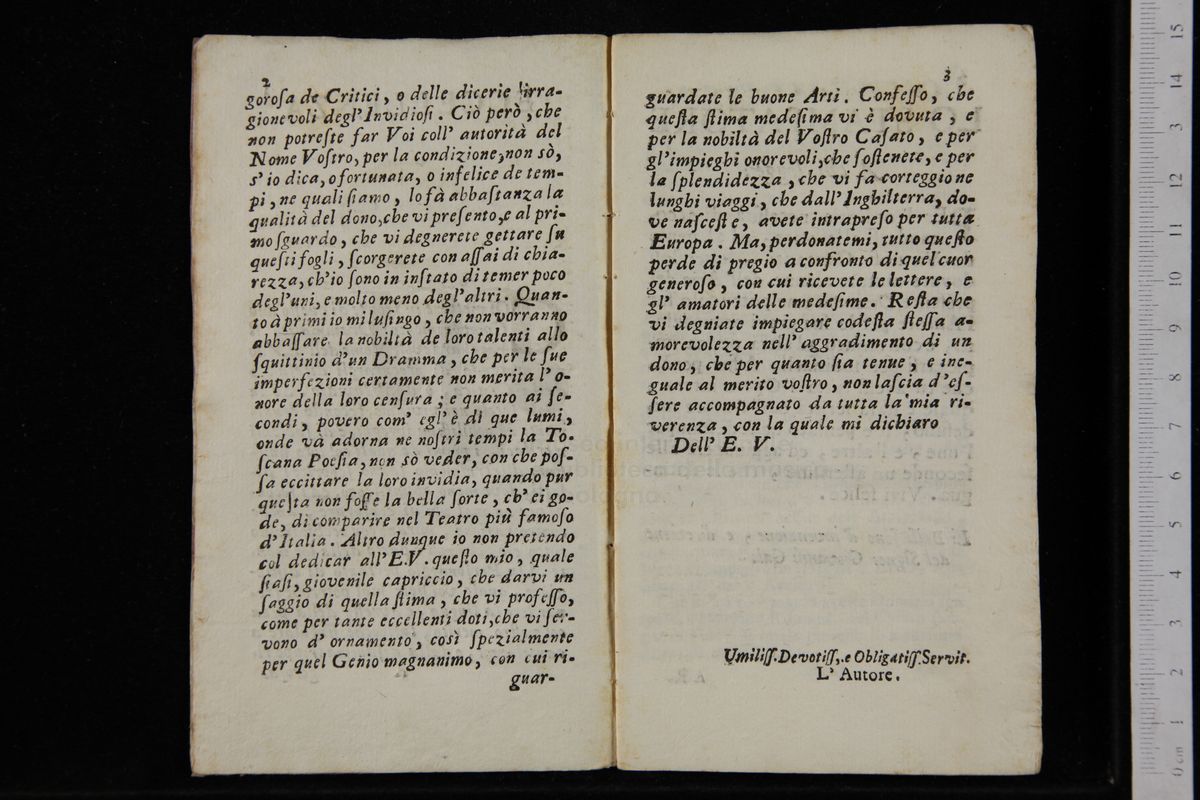 2
goroſa de Critici, o delle dicerie irra-
gionevoli degl'Invidioſi. Ciò però, che
non potreſte far Voi coll' autorità del
Nome Voſtro, per la condizione, non sò,
s' io dica, o fortunata, o infelice de tem-
pi, ne quali ſiamo, lo fà abbaſtanza la
qualità del dono, che vi preſento, e al pri-
mo ſguardo, che vi degnerete gettare ſu
queſti fogli, ſcorgerete con aſſai di chia-
rezza, ch'io ſono in iſtato di temer poco
degl'uni, e molto meno degl'altri. Quan-
to à primi io mi luſingo, che non vorranno
abbaſſare la nobiltà de loro talenti allo
ſquittinio d'un Dramma, che per le ſue
imperfezioni certamente non merita l' o-
nore della loro cenſura; e quanto ai ſe-
condi, povero com' egl' è di que lumi,
onde và adorna ne noſtri tempi la To-
ſcana Poeſia, non sò veder, con che poſ-
ſa eccittare la loro invidia, quando pur
queſta non foſſe la bella ſorte, ch' ei go-
de, di comparire nel Teatro più famoſo
d'Italia. Altro dunque io non pretendo
col dedicar all'E.V. queſto mio, quale
ſiaſi, giovenile capriccio, che darvi un
ſaggio di quella ſtima, che vi profeſſo,
come per tante eccellenti doti, che vi ſer-
vono d' ornamento, così ſpezialmente
per quel Genio magnanimo, con cui ri-
guar-
3
guardate le buone Arti. Confeſſo, che
queſta ſtima medeſima vi è dovuta, e
per la nobiltà del Voſtro Caſato, e per
gl'impieghi onorevoli, che ſoſtenete, e per
la ſplendidezza, che vi fa corteggio ne
lunghi viaggi, che dall'Inghilterra, do-
ve naſceſte, avete intrapreſo per tutta
Europa. Ma, perdonatemi, tutto queſto
perde di pregio a confronto di quel cuor
generoſo, con cui ricevete le lettere, e
gl' amatori delle medeſime. Reſta che
vi degniate impiegare codeſta ſteſſa a-
morevolezza nell' aggradimento di un
dono, che per quanto ſia tenue, e ine-
guale al merito voſtro, non laſcia d'eſ-
ſere accompagnato da tutta la mia ri-
verenza, con la quale mi dichiaro
Dell' E. V.
Umiliſſ. Devotiſſ., e Obligatiſſ. Servit.
L' Autore.